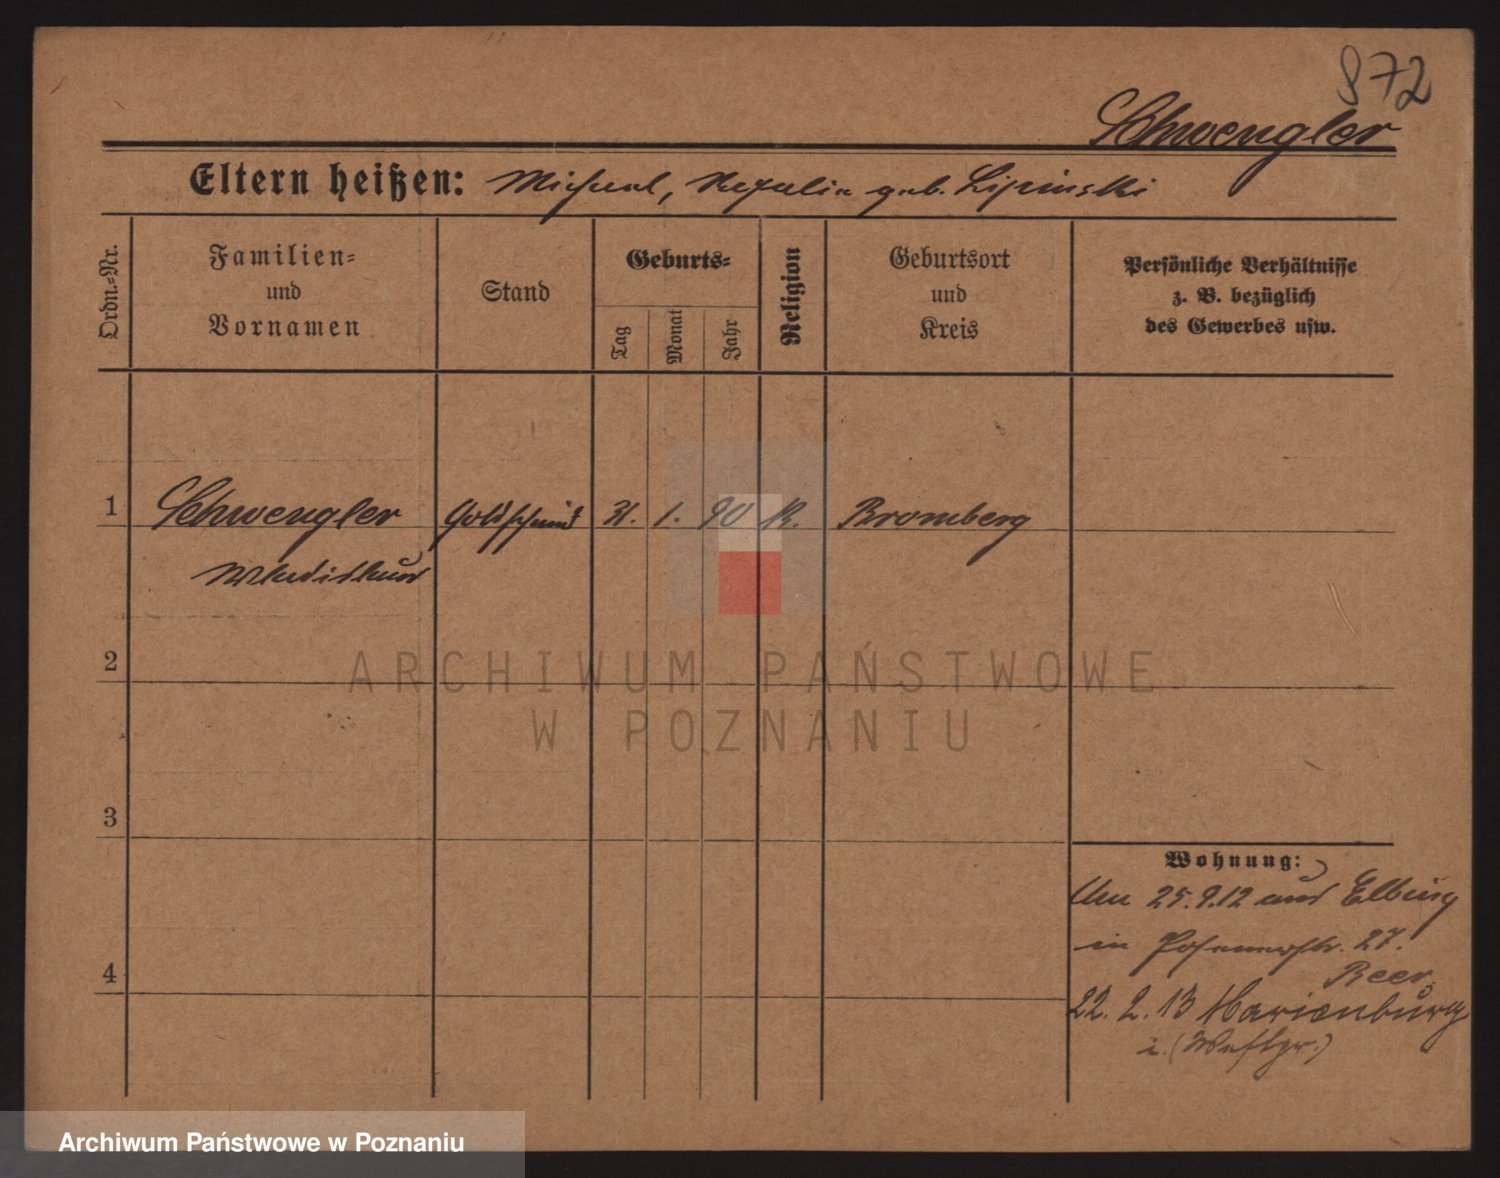 872
Schwengler
Eltern heißen: Michael, geb. Lipinski
Ordn.-Nr.
Familien-
und
Vornamen
Stand
Geburts-
Tag
Monat
Jahr
Religion
Geburtsort
und
Kreis
Persönliche Verhältnisse
z. B. bezüglich
des Gewerbes usw.
1 Schwengler Goldschmied 31. 1. 90 K. Bromberg
Wladislaus
2
3
4
Wohnung:
25.9.12 aus Elbing
in Posenerstr. 27.
Beer
22. 2. 13 Marienburg
i. (Westpr.)
ARCHIWUM PAŃSTWOWE
W POZNANIU
Archiwum Państwowe w Poznaniu